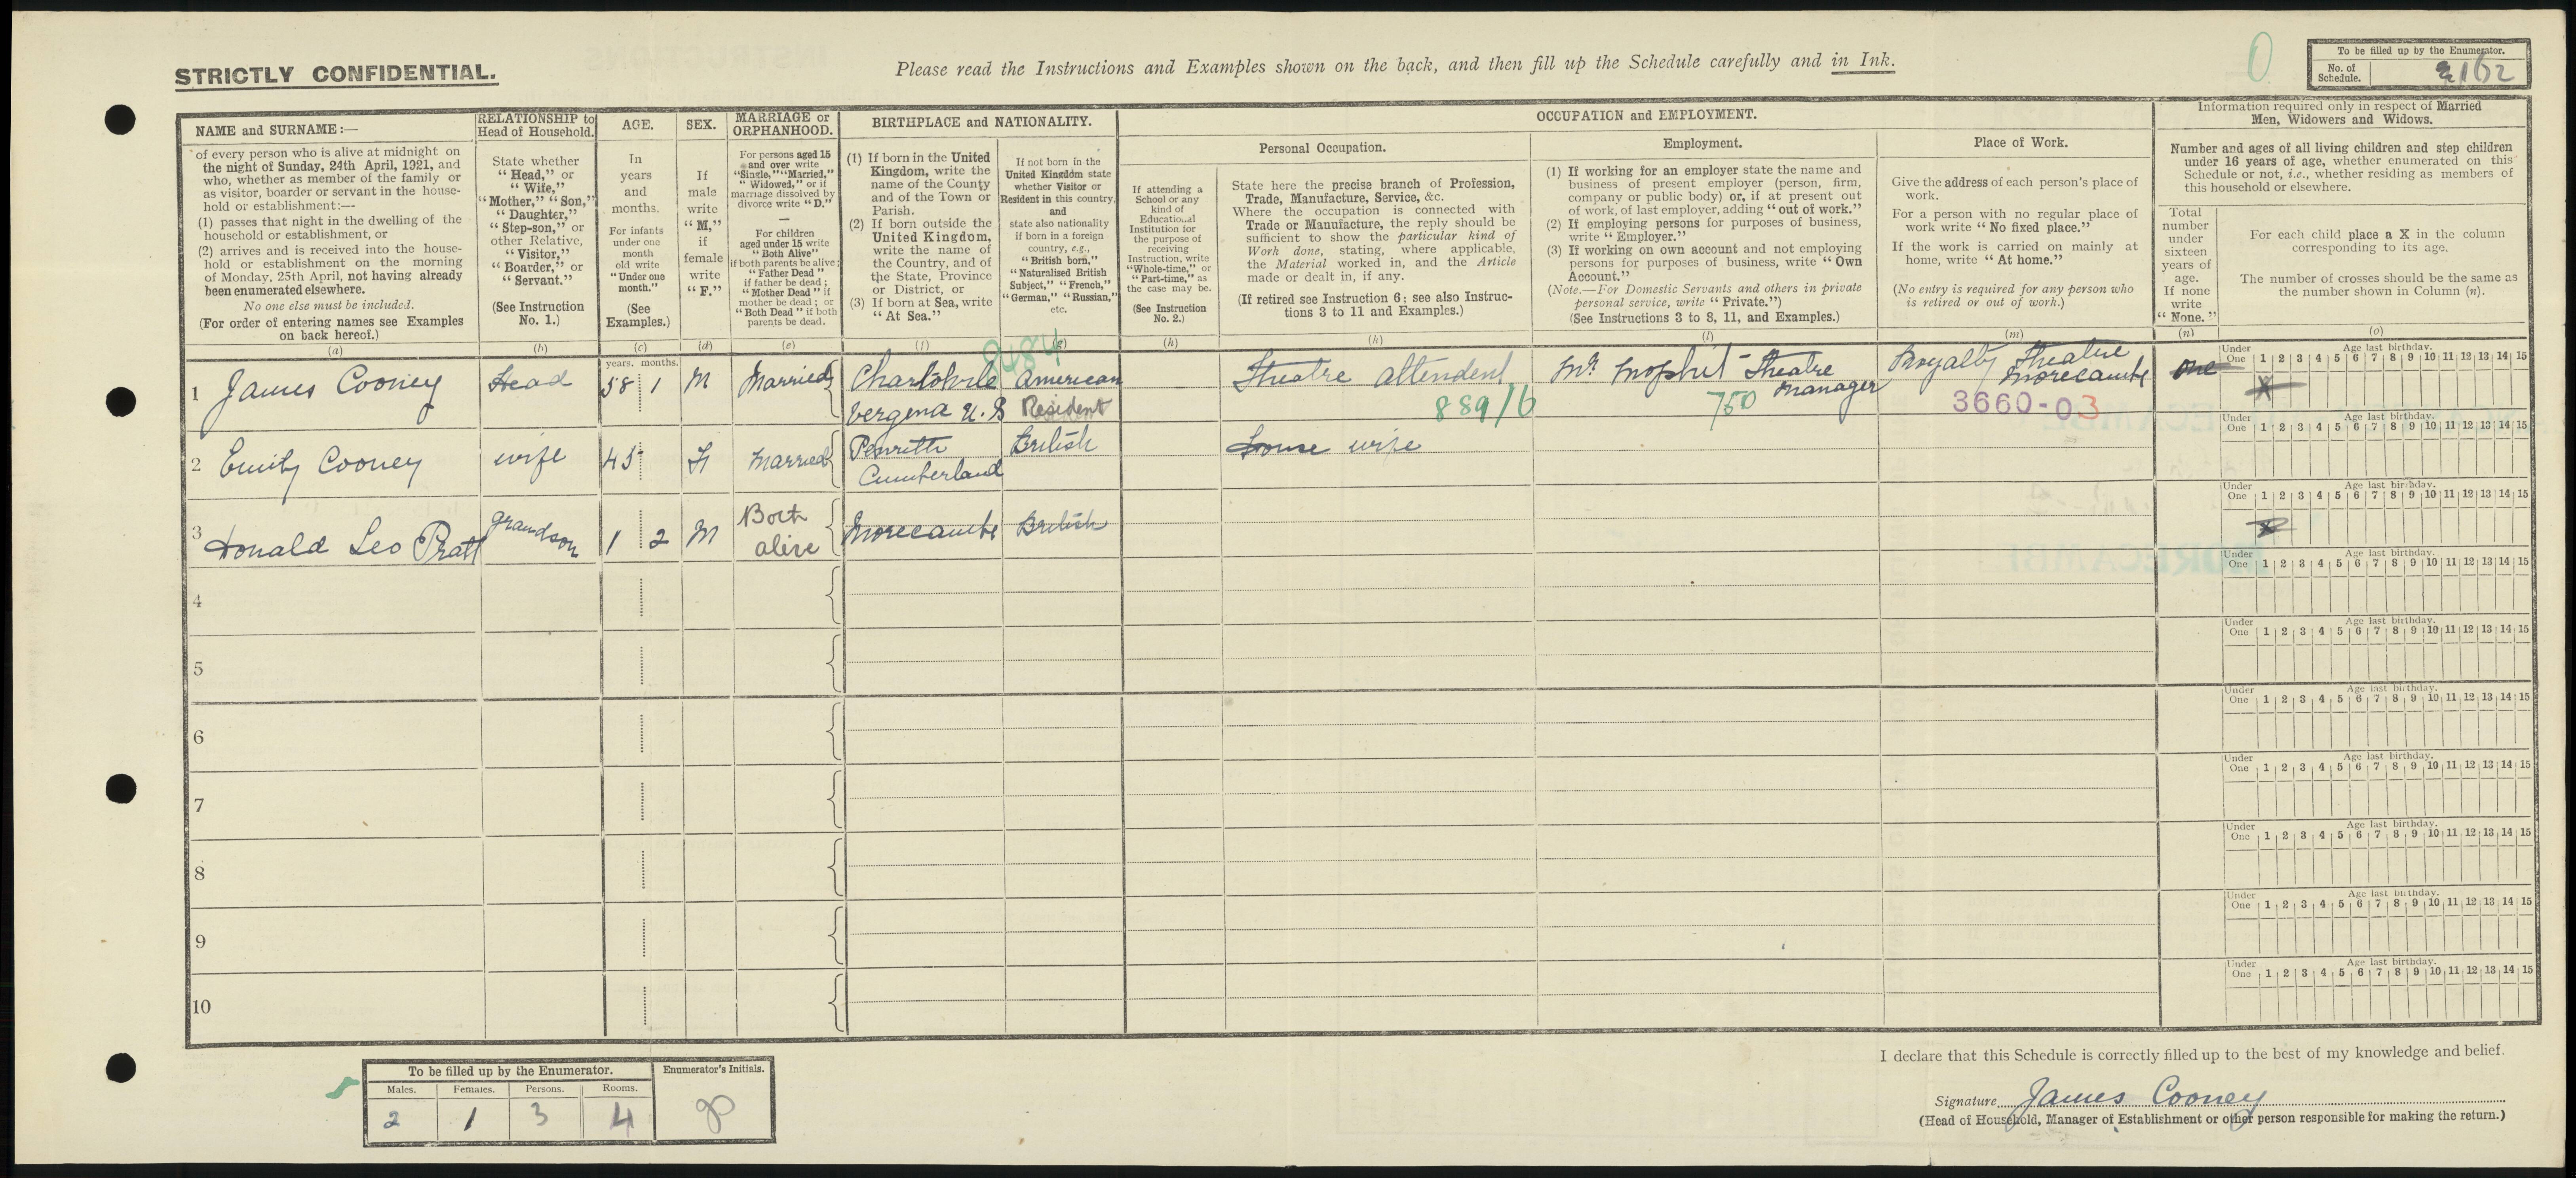 STRICTLY CONFIDENTIAL.
Please read the Instructions and Examples shown on the back, and then fill up the Schedule carefully and in Ink.
To be filled up by the Enumerator.
No. of Schedule. 162
NAME and SURNAME:—
of every person who is alive at midnight on
the night of Sunday, 24th April, 1921, and
who, whether as member of the family or
as visitor, boarder or servant in the house-
hold or establishment:—
(1) passes that night in the dwelling of the
household or establishment, or
(2) arrives and is received into the house-
hold or establishment on the morning
of Monday, 25th April, not having already
been enumerated elsewhere.
No one else must be included.
(For order of entering names see Examples
on back hereof.)
(a)
RELATIONSHIP to
Head of Household.
State whether
"Head," or
"Wife,"
"Mother," "Son,"
"Daughter,"
"Step-son," or
other Relative,
"Visitor,"
"Boarder," or
"Servant."
(See Instruction
No. 1.)
(b)
AGE.
In
years
and
months.
For infants
under one
month
old write
"Under one
month."
(See
Examples.)
(c)
SEX.
If
male
write
"M,"
if
female
write
"F."
(d)
MARRIAGE or
ORPHANHOOD.
For persons aged 15
and over write
"Single," "Married,"
"Widowed," or if
marriage dissolved by
divorce write "D."
—
For children
aged under 15 write
"Both Alive"
if both parents be alive;
"Father Dead"
if father be dead;
"Mother Dead" if
mother be dead; or
"Both Dead" if both
parents be dead.
(e)
BIRTHPLACE and NATIONALITY.
(1) If born in the United
Kingdom, write the
name of the County
and of the Town or
Parish.
(2) If born outside the
United Kingdom,
write the name of
the Country, and of
the State, Province
or District, or
(3) If born at Sea, write
"At Sea."
(f)
If not born in the
United Kingdom state
whether Visitor or
Resident in this country,
and
state also nationality
if born in a foreign
country, e.g.,
"British born,"
"Naturalised British
Subject," "French,"
"German," "Russian,"
etc.
(g)
OCCUPATION and EMPLOYMENT.
Personal Occupation.
If attending a
School or any
kind of
Educational
Institution for
the purpose of
receiving
Instruction, write
"Whole-time," or
"Part-time," as
the case may be.
(See Instruction
No. 2.)
(h)
State here the precise branch of Profession,
Trade, Manufacture, Service, &c.
Where the occupation is connected with
Trade or Manufacture, the reply should be
sufficient to show the particular kind of
Work done, stating, where applicable,
the Material worked in, and the Article
made or dealt in, if any.
(If retired see Instruction 6; see also Instruc-
tions 3 to 11 and Examples.)
(k)
Employment.
(1) If working for an employer state the name and
business of present employer (person, firm,
company or public body) or, if at present out
of work, of last employer, adding "out of work."
(2) If employing persons for purposes of business,
write "Employer."
(3) If working on own account and not employing
persons for purposes of business, write "Own
Account."
(Note.—For Domestic Servants and others in private
personal service, write "Private.")
(See Instructions 3 to 8, 11, and Examples.)
(l)
Place of Work.
Give the address of each person's place of
work.
For a person with no regular place of
work write "No fixed place."
If the work is carried on mainly at
home, write "At home."
(No entry is required for any person who
is retired or out of work.)
(m)
Information required only in respect of Married
Men, Widowers and Widows.
Number and ages of all living children and step children
under 16 years of age, whether enumerated on this
Schedule or not, i.e., whether residing as members of
this household or elsewhere.
Total
number
under
sixteen
years of
age.
If none
write
"None."
(n)
For each child place a X in the column
corresponding to its age.
The number of crosses should be the same as
the number shown in Column (n).
(o)
years. months.
Under One Age last birthday.
1 2 3 4 5 6 7 8 9 10 11 12 13 14 15
1 James Cooney Head 58 1 M Married Charlotvile American Theatre attendent Mr Mophit Theatre Royalty Theatre one X
Vergena U.S Resident 889/6 750 Manager Morecambe
3660-03
Under One Age last birthday.
1 2 3 4 5 6 7 8 9 10 11 12 13 14 15
2 Emily Cooney wife 45 F Married Penrith British House wife
Cumberland
Under One Age last birthday.
1 2 3 4 5 6 7 8 9 10 11 12 13 14 15
3 Donald Leo Pratt grandson 1 2 M Both alive Morecambe British X
Under One Age last birthday.
1 2 3 4 5 6 7 8 9 10 11 12 13 14 15
4
Under One Age last birthday.
1 2 3 4 5 6 7 8 9 10 11 12 13 14 15
5
Under One Age last birthday.
1 2 3 4 5 6 7 8 9 10 11 12 13 14 15
6
Under One Age last birthday.
1 2 3 4 5 6 7 8 9 10 11 12 13 14 15
7
Under One Age last birthday.
1 2 3 4 5 6 7 8 9 10 11 12 13 14 15
8
Under One Age last birthday.
1 2 3 4 5 6 7 8 9 10 11 12 13 14 15
9
Under One Age last birthday.
1 2 3 4 5 6 7 8 9 10 11 12 13 14 15
10
To be filled up by the Enumerator.
Enumerator's Initials.
Males. Females. Persons. Rooms.
2 1 3 4
I declare that this Schedule is correctly filled up to the best of my knowledge and belief.
Signature James Cooney
(Head of Household, Manager of Establishment or other person responsible for making the return.)